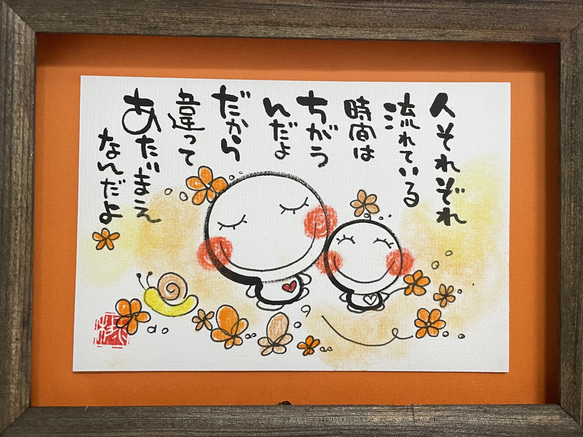 人それぞれ
流れている
時間は
ちがう
んだよ
だから
違って
あたりまえ
なんだよ